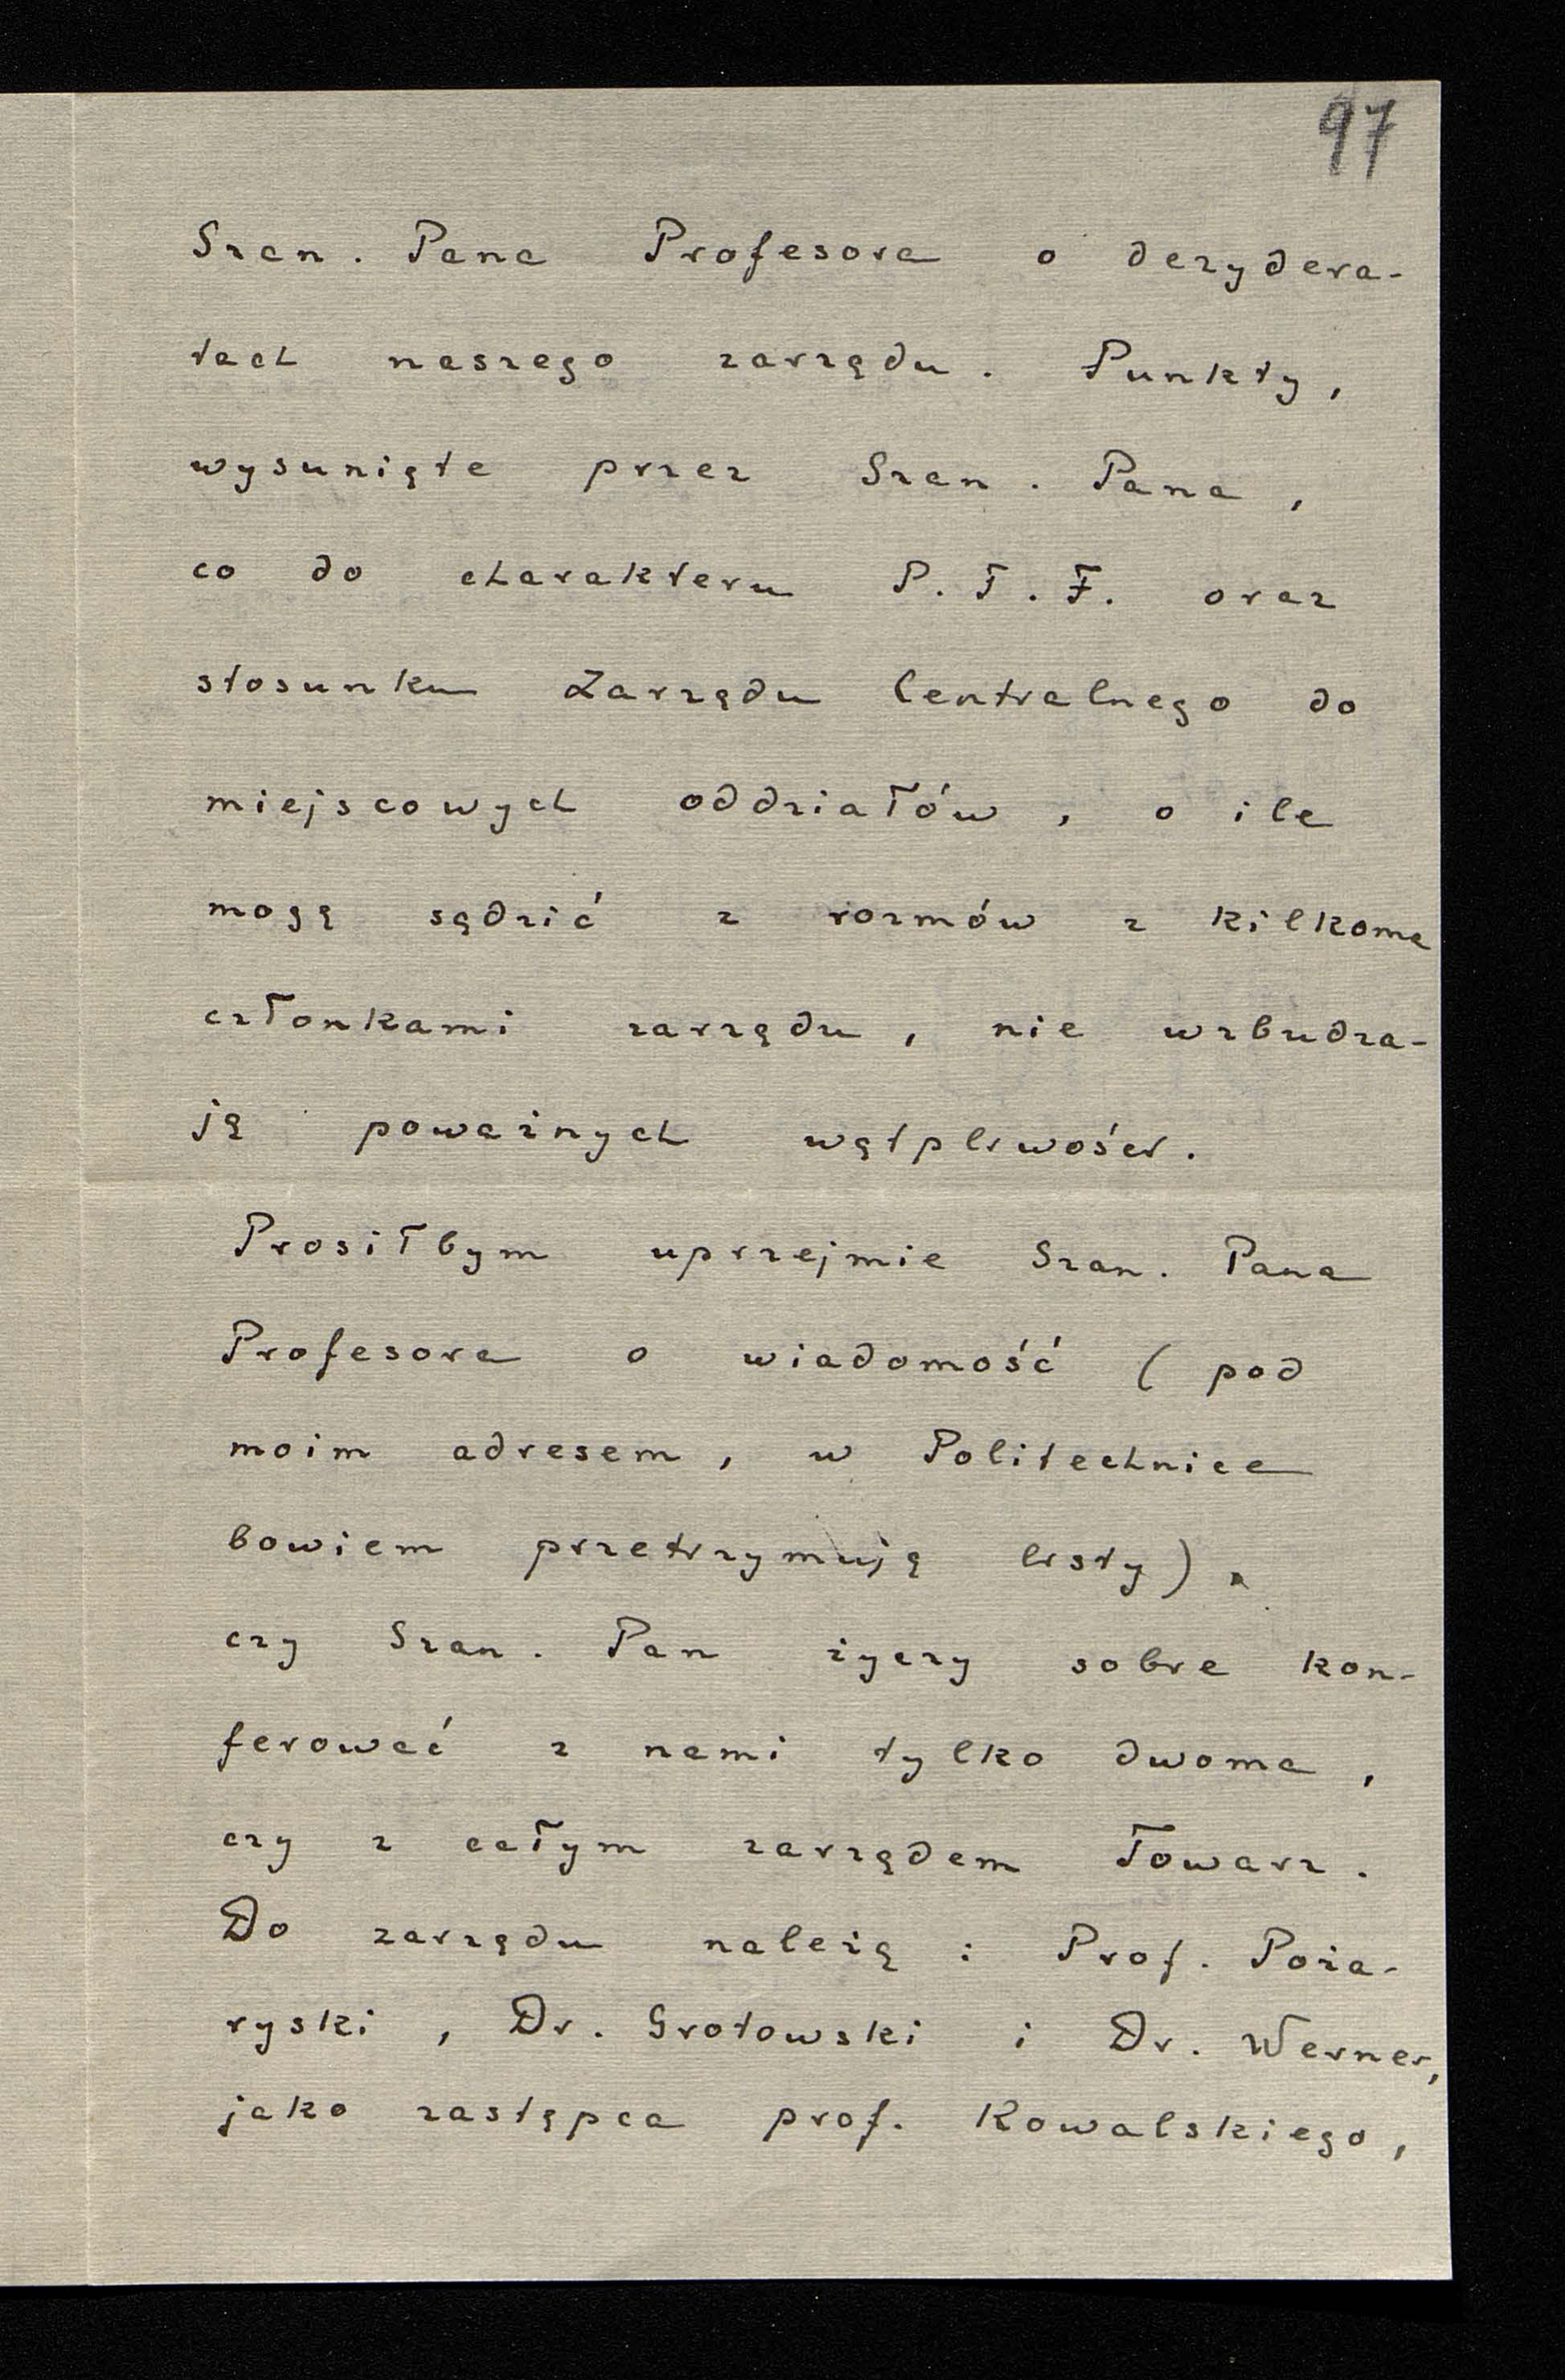 97
Szan. Pana Profesora o dezydera-
tach naszego zarządu. Punkty,
wysunięte przez Szan. Pana,
co do charakteru P. T. F. oraz
stosunku Zarządu Centralnego do
miejscowych oddziałów, o ile
mogę sądzić z rozmów z kilkoma
członkami zarządu, nie wzbudza-
ją poważnych wątpliwości.
Prosiłbym uprzejmie Szan. Pana
Profesora o wiadomość (pod
moim adresem, w Politechnice
bowiem przetrzymują listy),
czy Szan. Pan życzy sobie kon-
ferować z nami tylko dwoma,
czy z całym zarządem Towarz.
Do zarządu należą: Prof. Poża-
ryski, Dr. Grotowski i Dr. Werner,
jako zastępca prof. Kowalskiego,